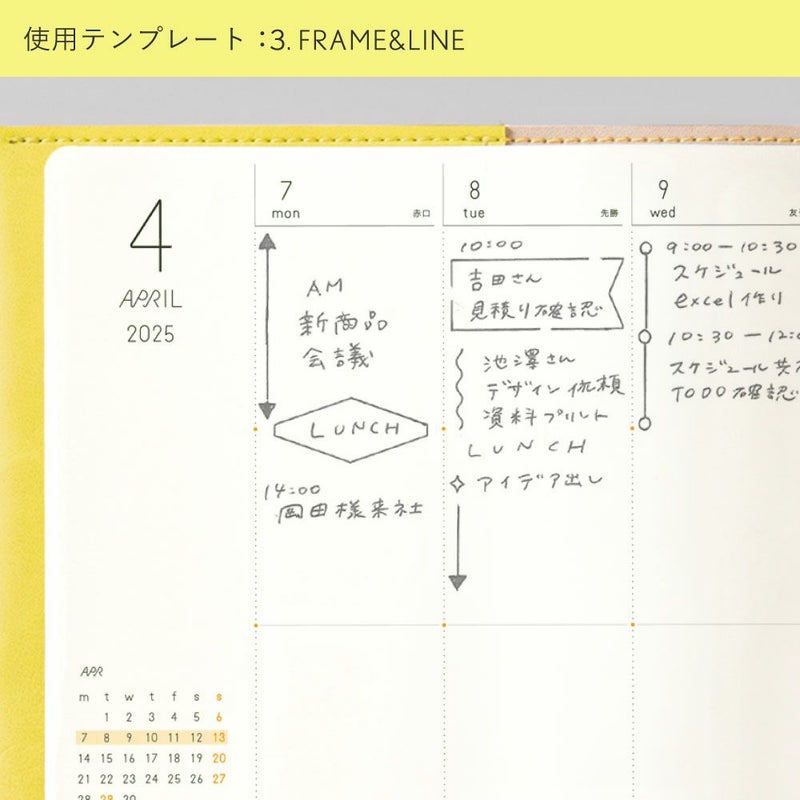 使用テンプレート:3. FRAME&LINE
4
APRIL
2025
7
mon 赤口
AM
新商品
会議
LUNCH
14:00
岡田様来社
8
tue 先勝
10:00
吉田さん
見積り確認
池澤さん
デザイン依頼
資料プリント
LUNCH
アイデア出し
9
wed 友
9:00 — 10:30
スケジュール
excel 作り
10:30 — 12:
スケジュール
TODO確認
APR
m t w t f s s
1 2 3 4 5 6
7 8 9 10 11 12 13
14 15 16 17 18 19 20
21 22 23 24 25 26 27
28 29 30